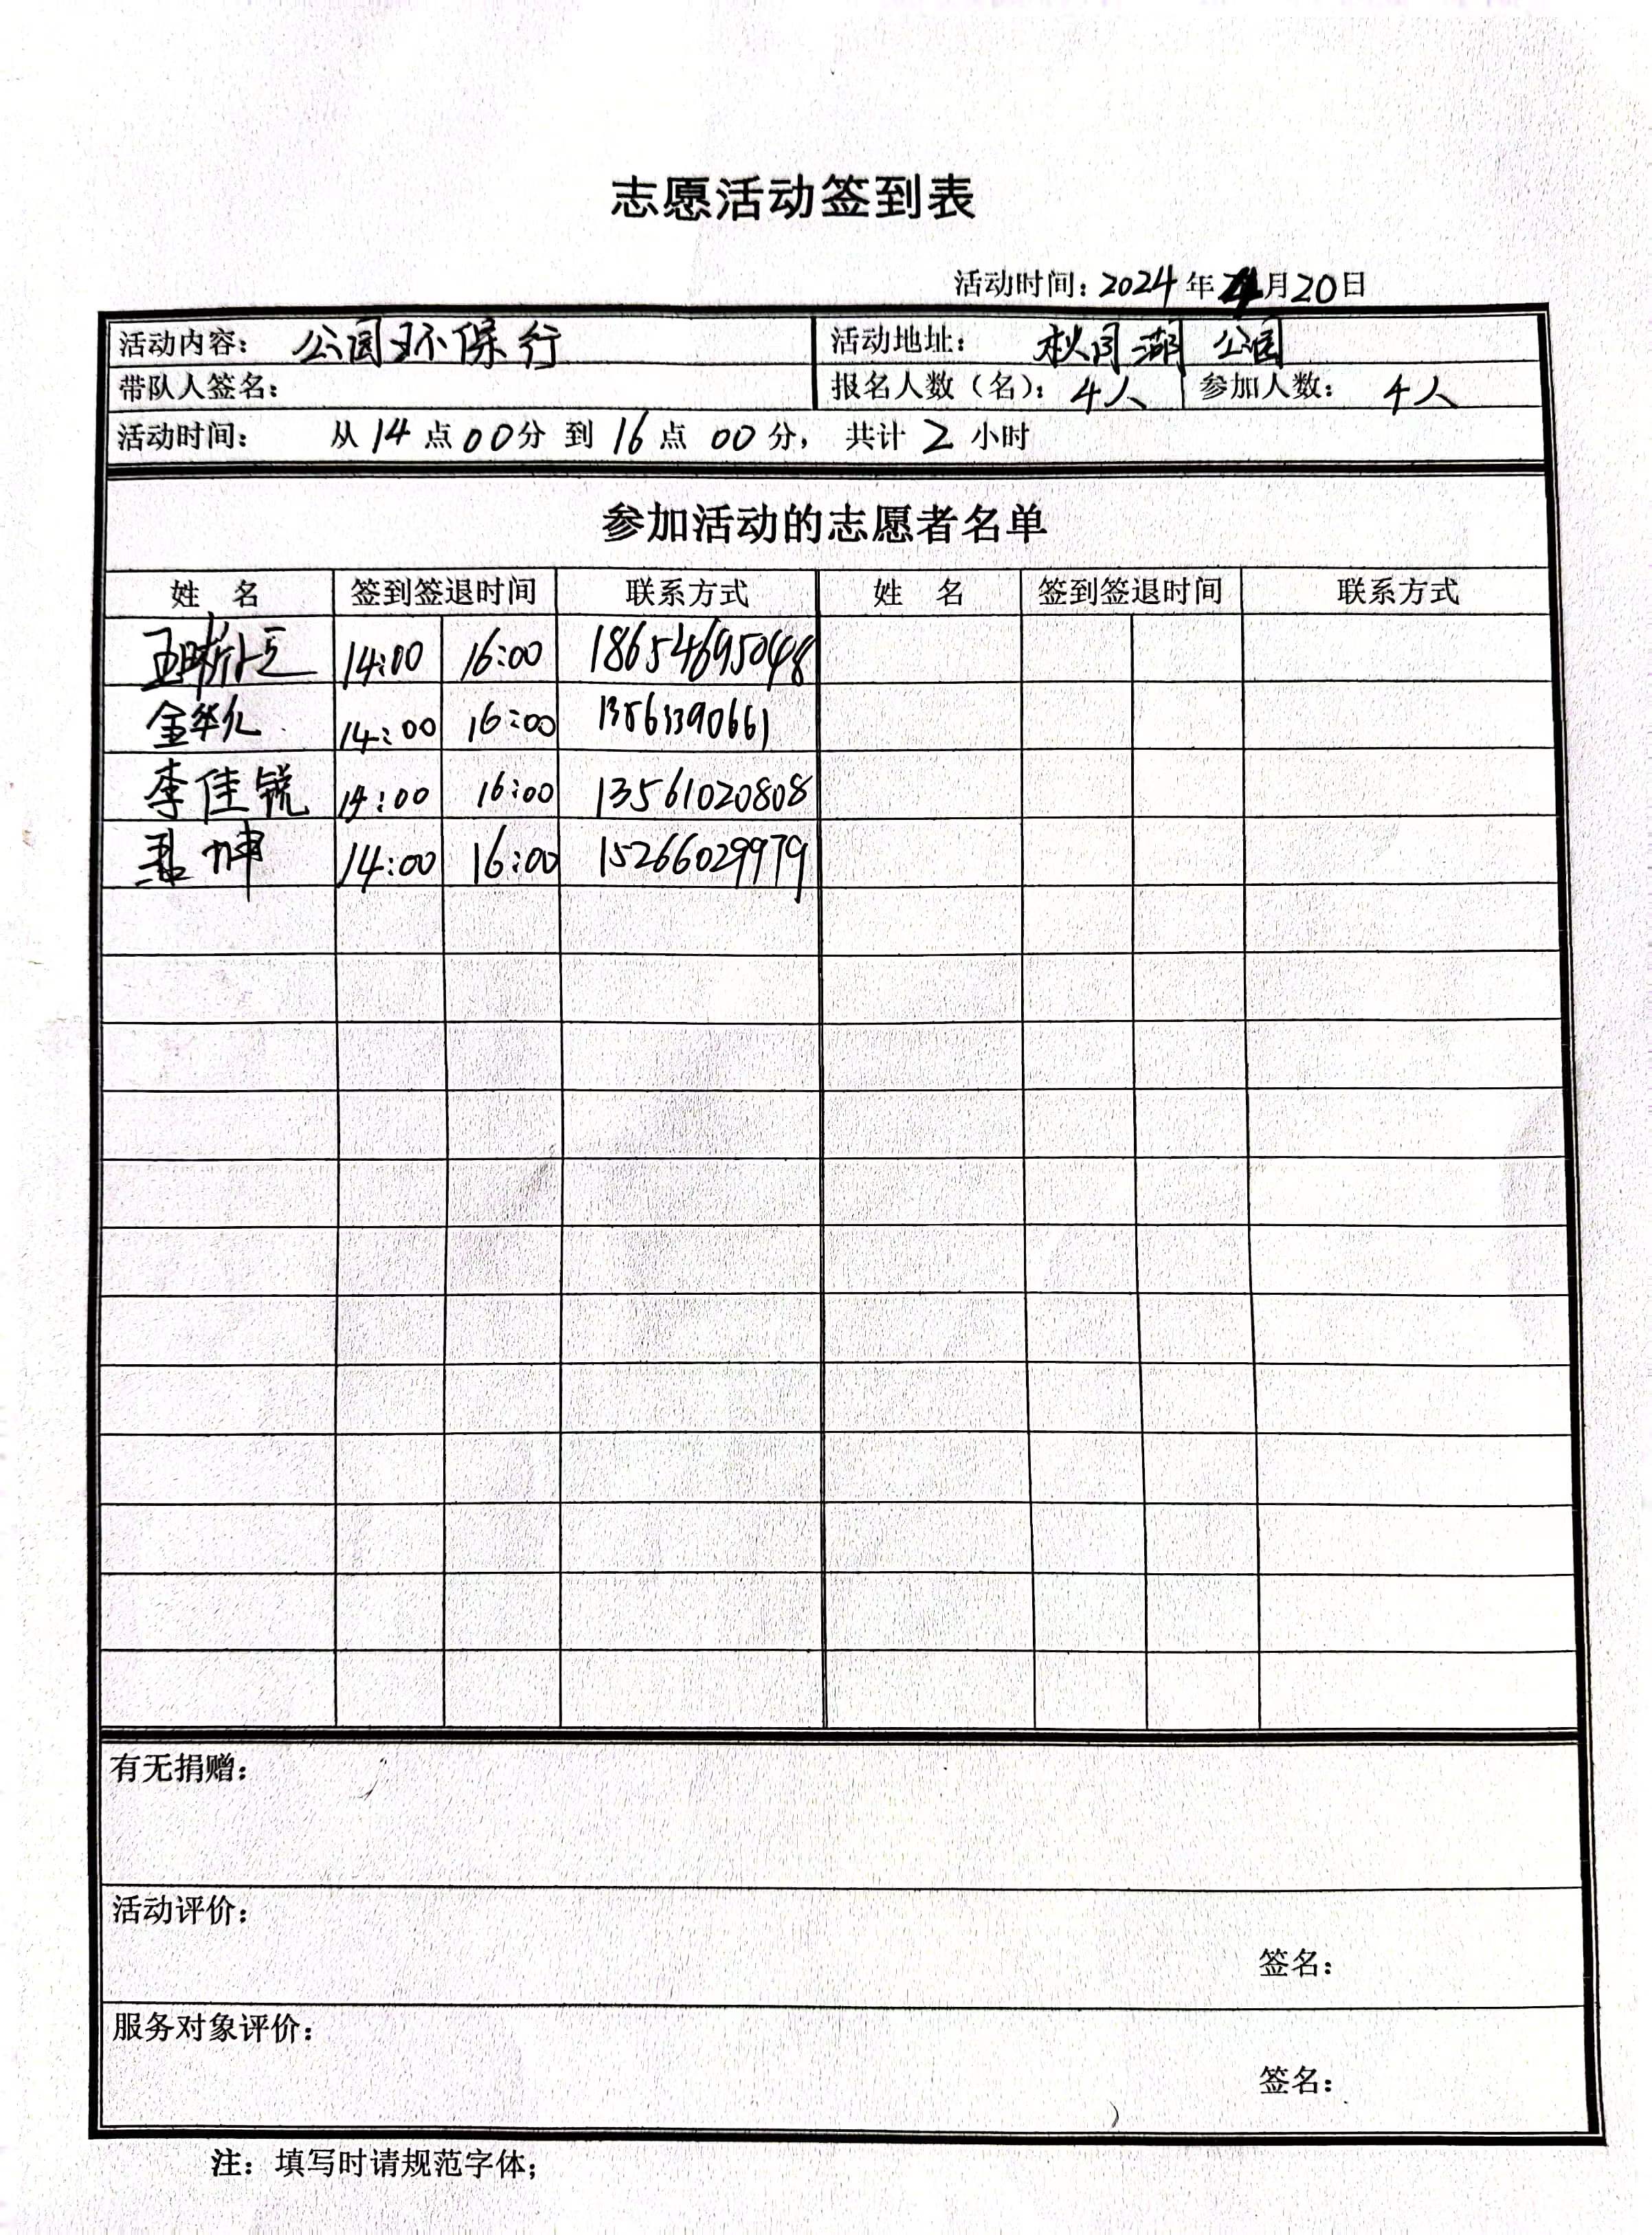 志愿活动签到表
活动时间：2024年4月20日
活动内容： 公园环保行 活动地址： 秋月湖 公园
带队人签名： 报名人数（名）：4人 参加人数： 4人
活动时间： 从14点00分 到16点00分， 共计2小时
参加活动的志愿者名单
姓 名 签到签退时间 联系方式 姓 名 签到签退时间 联系方式
14:00 16:00 18654695048
14:00 16:00
李佳锐 14:00 16:00 13561020808
坤 14:00 16:00 15266029979
有无捐赠：
活动评价：
签名：
服务对象评价：
签名：
注：填写时请规范字体；